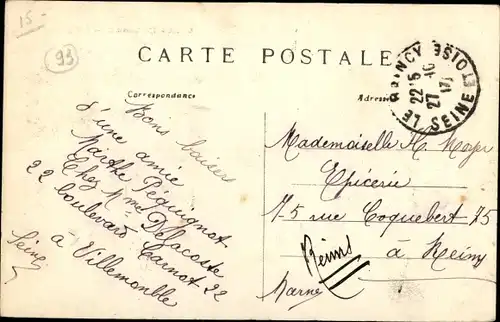 15
93
CARTE POSTALE
Correspondance
Adresse
LE RAINCY SEINE ET OISE
22 15
27 10
17
Bons baisers
d'une amie
Marthe Péquignot
Chez Mme Delacoste
22 boulevard Carnot 22
à Villemomble
Seine
Mademoiselle H. Moyer
Epicerie
75 rue Coquebert 75
à Reims
Reims
Marne